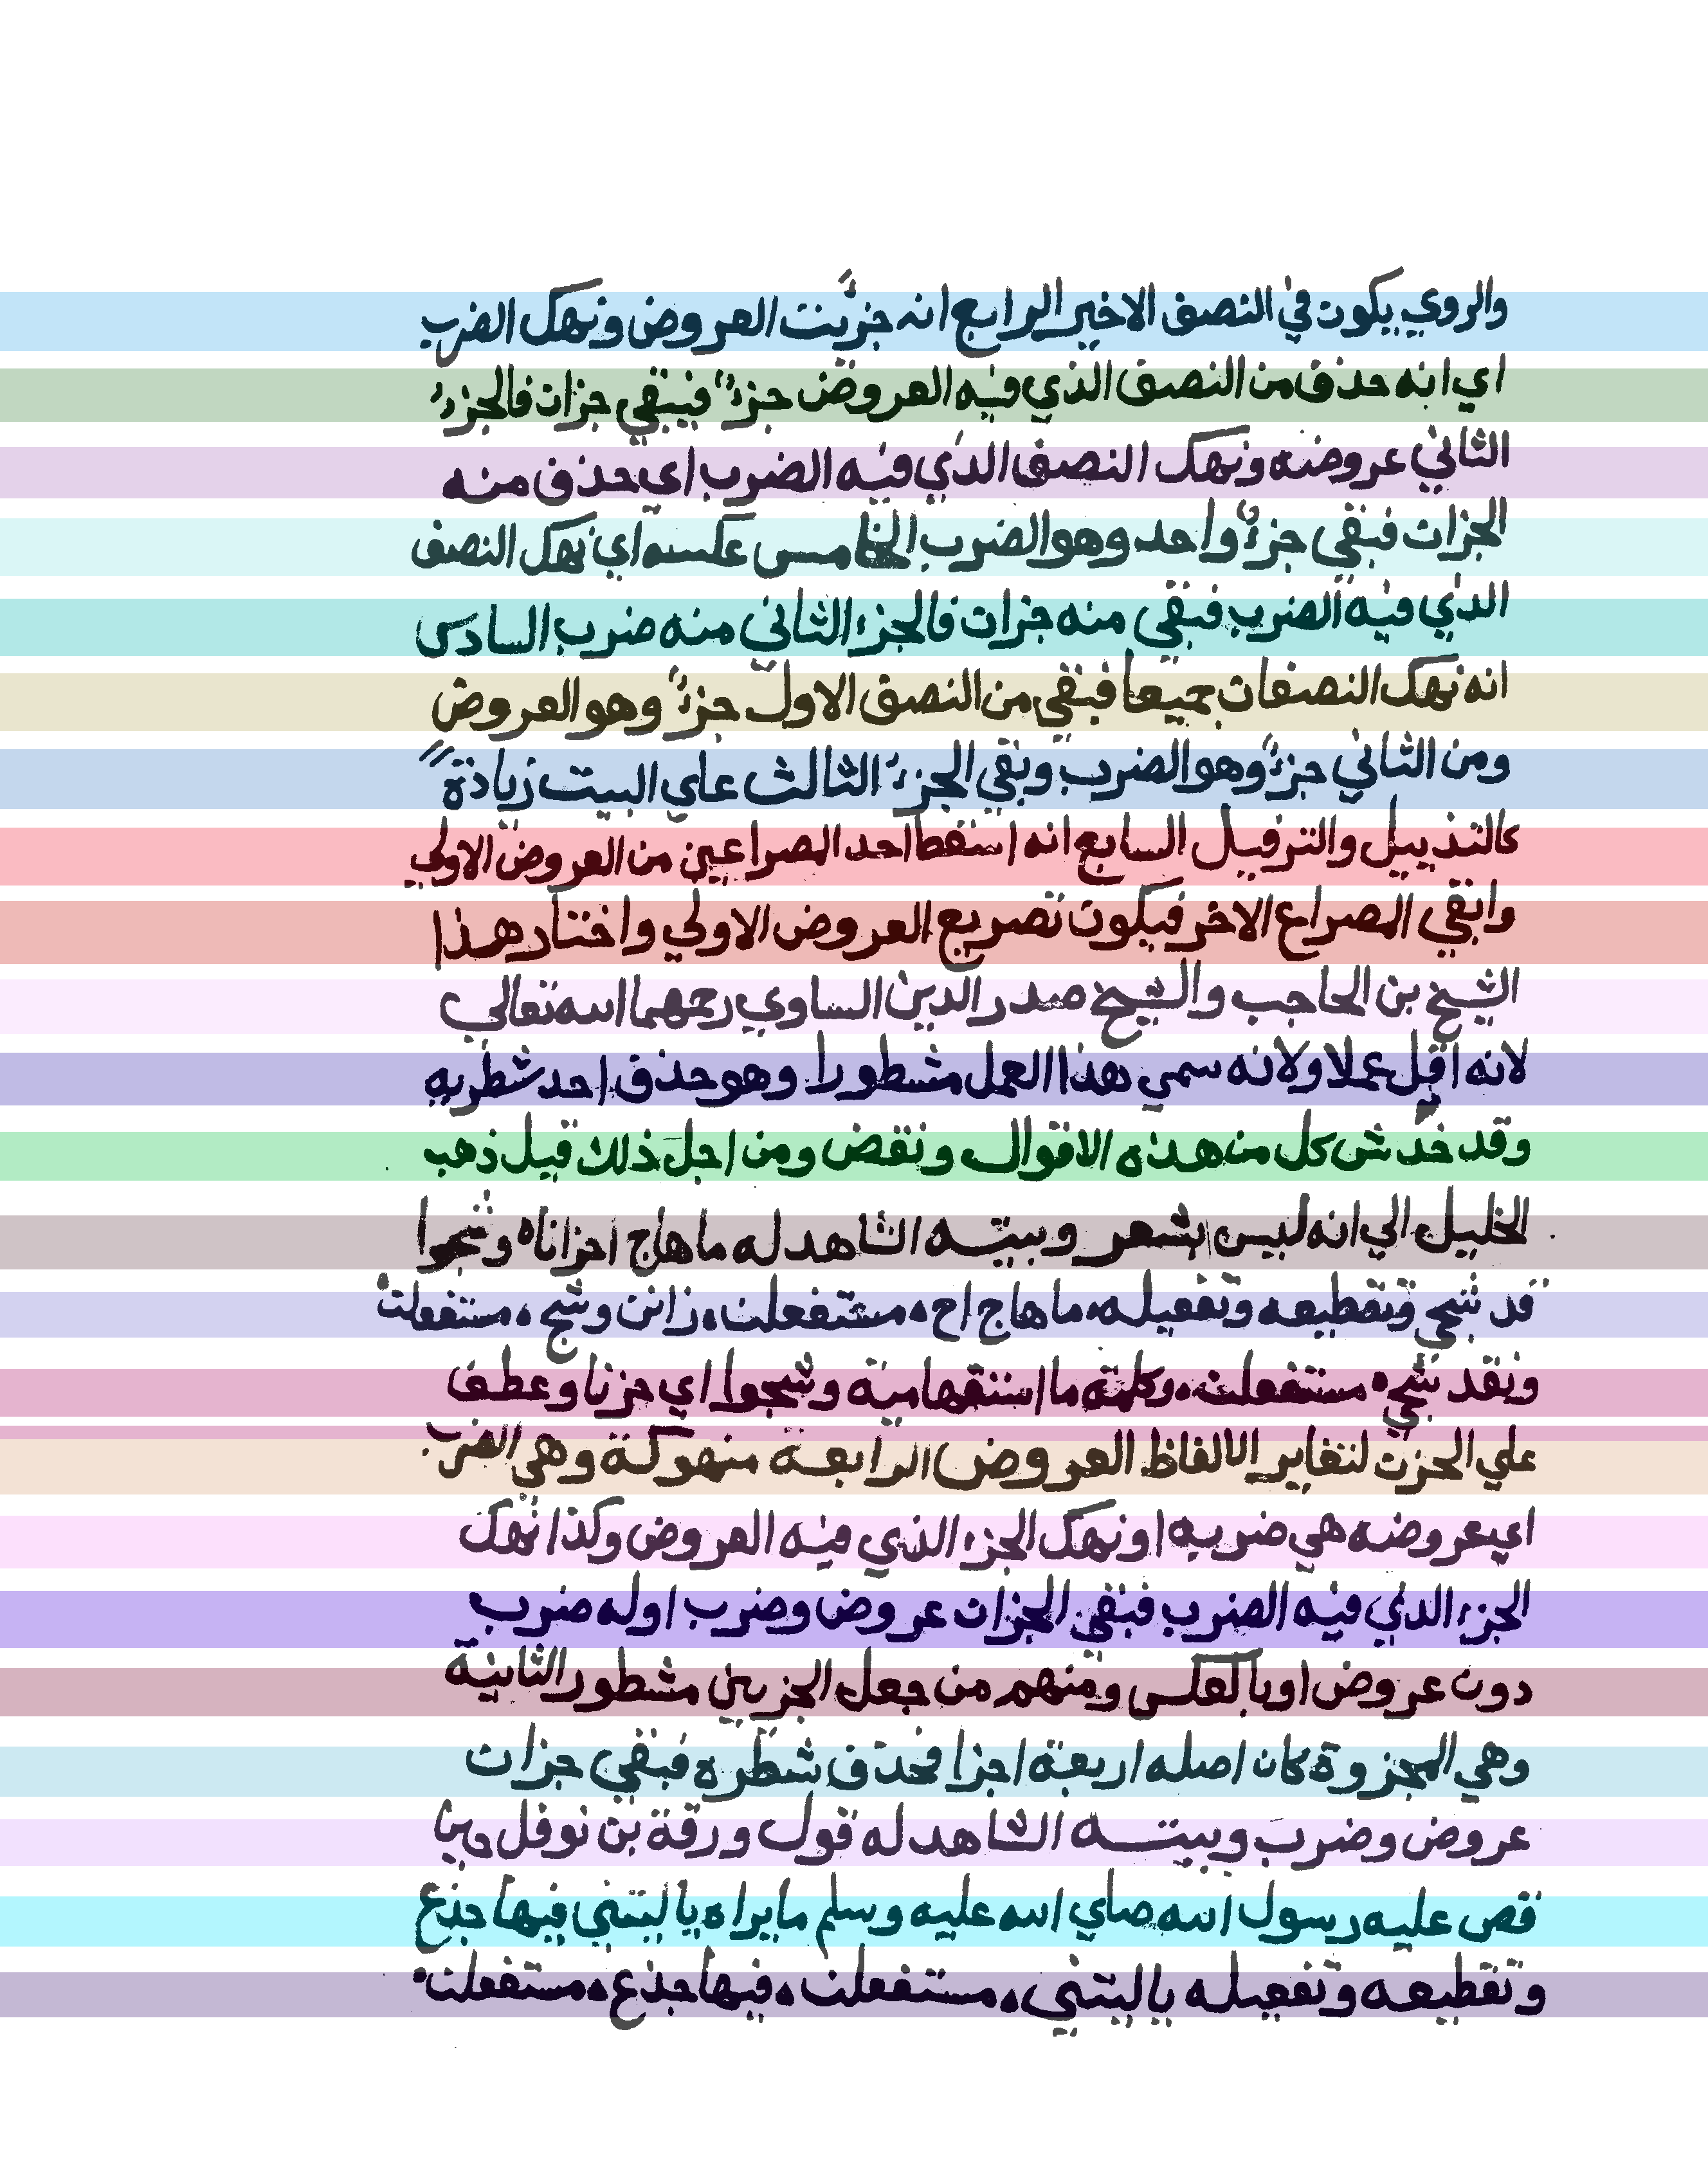 والروي يكون في النصف الاخير الرابع انه جزئت العروض ونهك الضرب
اي انه حذف من النصف الذي فيه العروض جزء فيبقي جزان فالجزء
الثاني عروضه ونهك النصف الذي فيه الضرب اى حذف منه
الجزان فبقي جزء واحد وهو الضرب الخامس عكسه اي نهك النصف
الذي فيه الضرب فبقى منه جزان فالجزء الثانى منه ضرب السادس
انه نهك النصفان جميعا فبقي من النصف الاول جزء وهو العروض
ومن الثاني جزء وهو الضرب وبقي الجزء الثالث علي البيت زيادة
كالتذييل والترفيل السابع انه اسقط احد المصراعين من العروض الاولي
وابقي المصراع الاخر فيكون تصريع العروض الاولي واختار هذا
الشيخ بن الحاجب والشيخ صدر الدين الساوي رحمهما الله تعالي
لانه اقل عملا ولانه سمي هذا العمل مشطورا وهو حذف احد شطريه
وقد خدش كل من هذه الاقوال ونقض ومن اجل ذلك قيل ذهب
الخليل الي انه ليس بشعر وبيته الشاهد له ما هاج احزانا وشجوا
قد شجي وتقطيعه وتفعيله ما هاج اح ، مستفعلن ، زانن وشج ، مستفعلن
ونقد شجي ، مستفعلن ، وكلمة ما استفهامية وشجوا اي حزنا وعطف
علي الحزن لتغاير الالفاظ العروض الرابعة منهوكة وهي الضرب
اي عروضه هي ضربه او نهك الجزء الذي فيه العروض وكذا نهك
الجزء الذي فيه الضرب فبقى الجزان عروض وضرب او له ضرب
دون عروض او بالعكس ومنهم من جعل الجزين مشطور الثانية
وهي المجزوة كان اصله اربعة اجزا فحذف شطره فبقي جزان
عروض وضرب وبيته الشاهد له قول ورقة بن نوفل حين
قص عليه رسول الله صلي الله عليه وسلم ما يراه يا ليتني فيها جذع
وتقطيعه وتفعيله ياليتني ، مستفعلن ، فيها جذع ، مستفعلن